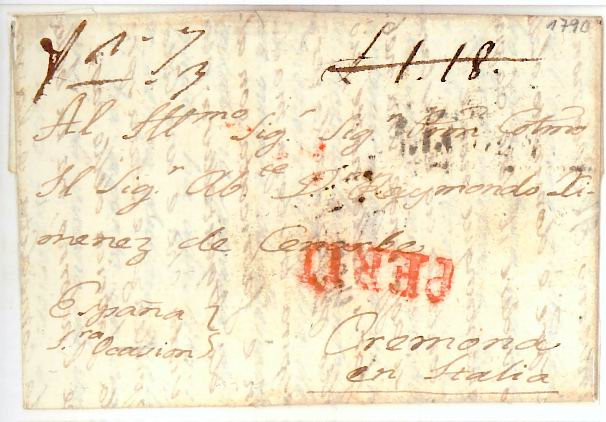 1790
£ 1.18.
Al Ill.mo Sig.r Sig.r Pron Colmo
Il Sig.r Ab.te D.n Raymondo Xi-
menez de
PERU
España
1.ra Ocasion
Cremona
en Italia